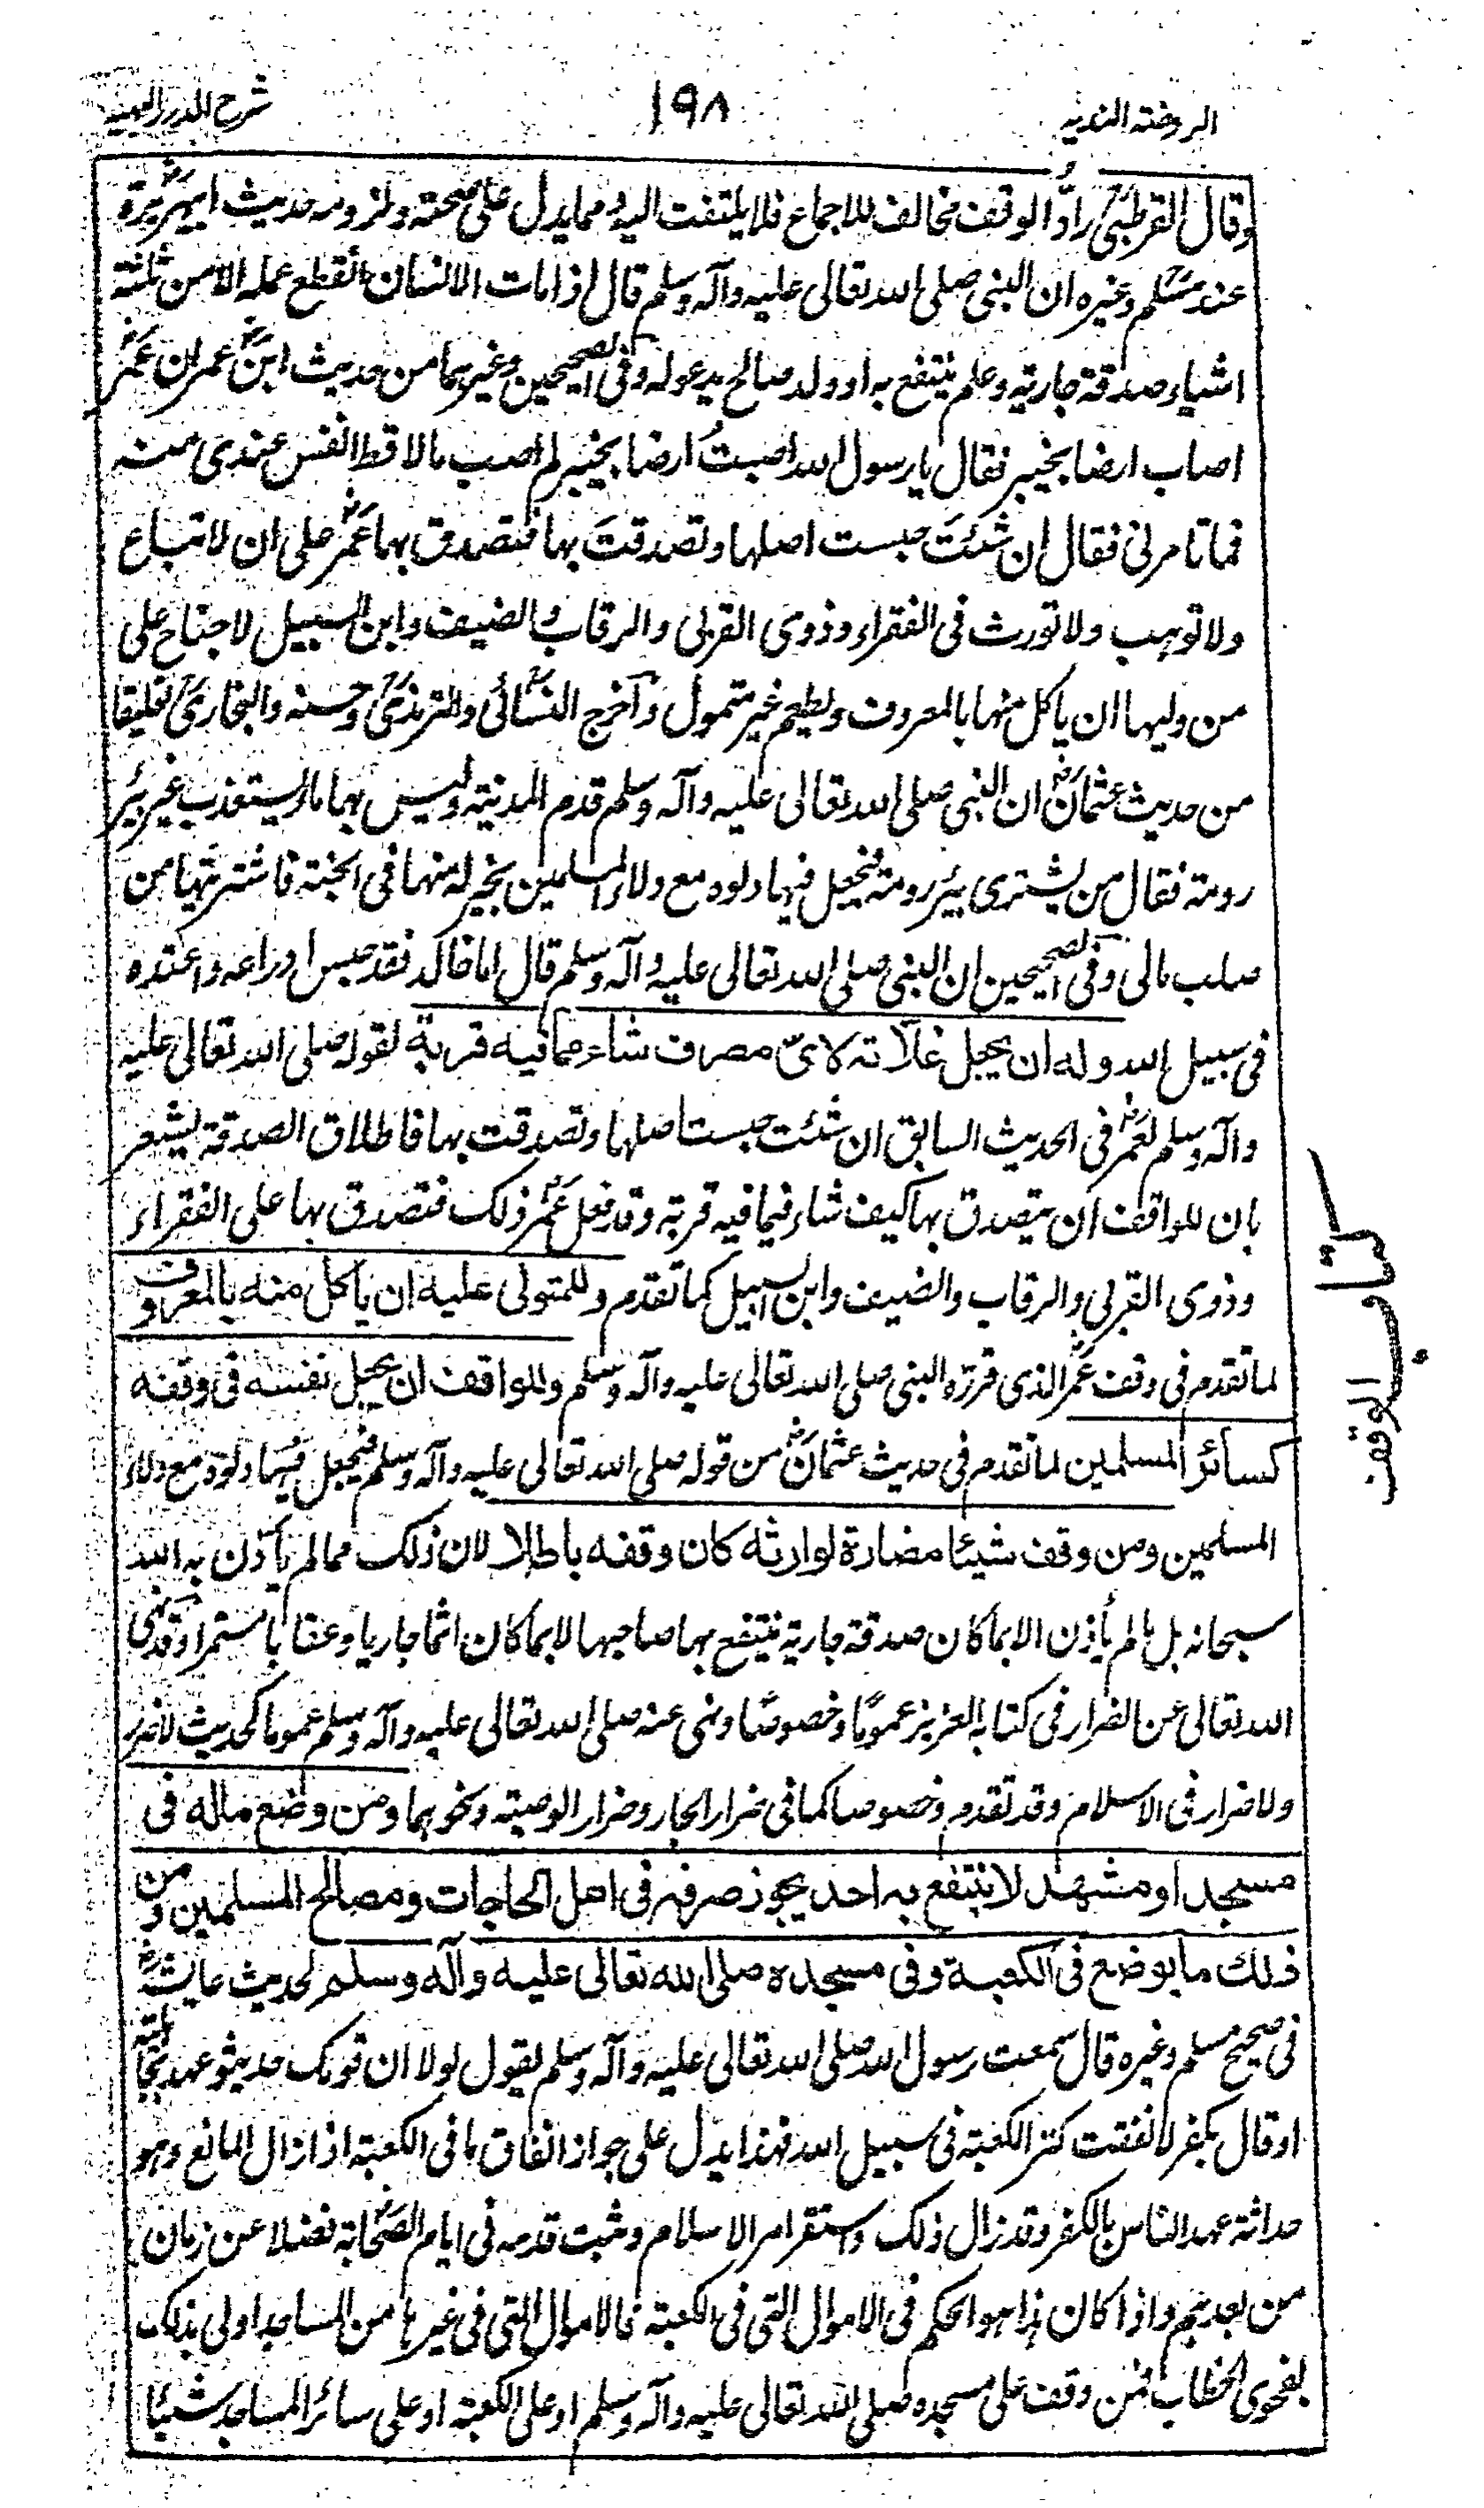 الروضة الندية ١٩٨ شرح الدرر البهية
وقال القرطبي رادُّ الوقف مخالف للاجماع فلا يلتفت اليه ومما يدل على صحته ولزومه حديث ابي هريرة
عند مسلم وغيره ان النبي صلى الله تعالى عليه وآله وسلم قال اذا مات الانسان انقطع عمله الا من ثلثة
اشياء صدقة جارية وعلم ينتفع به او ولد صالح يدعو له وفى الصحيحين وغيرهما من حديث ابن عمر ان عمر
اصاب ارضا بخيبر فقال يا رسول الله اصبتُ ارضا بخيبر لم اصب مالا قط انفس عندى منه
فما تامرنى فقال ان شئتَ حبست اصلها وتصدقتَ بها فتصدق بها عمر على ان لا تباع
ولا توهب ولا تورث فى الفقراء وذوى القربى والرقاب والضيف وابن السبيل لا جناح على
من وليها ان ياكل منها بالمعروف ويطعم غير متمول وأخرج النسائى والترمذى وحسنه والبخارى تعليقا
من حديث عثمان ان النبي صلى الله تعالى عليه وآله وسلم قدم المدينة وليس بها ماء يستعذب غير بير
رومة فقال من يشترى بير رومة فيجعل فيها دلوه مع دلاء المسلمين بخير له منها فى الجنة فاشتريتها من
صلب مالى وفى الصحيحين ان النبي صلى الله تعالى عليه وآله وسلم قال اما خالد فقد حبس ادراعه واعتده
فى سبيل الله وله ان يجعل غلّاته لاىّ مصرف شاء مما فيه قربة لقوله صلى الله تعالى عليه
وآله وسلم لعمر فى الحديث السابق ان شئت حبست اصلها وتصدقت بها فاطلاق الصدقة يشعر
بان للواقف ان يتصدق بها كيف شاء فيما فيه قربة وقد فعل عمر ذلك فتصدق بها على الفقراء
وذوى القربى والرقاب والضيف وابن السبيل كما تقدم وللمتولى عليه ان ياكل منه بالمعروف
لما تقدم فى وقف عمر الذى قرره النبي صلى الله تعالى عليه وآله وسلم وللواقف ان يجعل نفسه فى وقفه
كسائر المسلمين لما تقدم فى حديث عثمان من قوله صلى الله تعالى عليه وآله وسلم فيجعل فيها دلوه مع دلاء
المسلمين ومن وقف شيئا مضارة لوارثه كان وقفه باطلا لان ذلك مما لم ياذن به الله
سبحانه بل لم يأذن الا بما كان صدقة جارية ينتفع بها صاحبها لا بما كان اثما جاريا وعقابا مستمرا وقد نهى
الله تعالى عن الضرار فى كتابه العزيز عمومًا وخصوصًا ونهى عنه صلى الله تعالى عليه وآله وسلم عموما كحديث لا ضرر
ولا ضرار فى الاسلام وقد تقدم وخصوصا كما فى ضرار الجار وضرار الوصية ونحوهما ومن وضع ماله فى
مسجد او مشهد لا ينتفع به احد يجوز صرفه فى اهل الحاجات ومصالح المسلمين ومن
ذلك ما يوضع فى الكعبة وفى مسجده صلى الله تعالى عليه وآله وسلم لحديث عايشة
فى صحيح مسلم وغيره قال سمعت رسول الله صلى الله تعالى عليه وآله وسلم يقول لولا ان قومك حديثو عهد بجاهلية
او قال بكفر لانفقت كنز الكعبة فى سبيل الله فهذا يدل على جواز انفاق ما فى الكعبة اذا زال المانع وهو
حداثة عهد الناس بالكفر وقد زال ذلك واستقر امر الاسلام وثبت قدمه فى ايام الصحابة فضلا عن زمان
من بعدهم واذا كان هذا هو الحكم فى الاموال التى فى الكعبة فالاموال التى فى غيرها من المساجد اولى بذلك
بفحوى الخطاب فمن وقف على مسجده صلى الله تعالى عليه وآله وسلم او على الكعبة او على سائر المساجد شيئا
كتاب الوقف